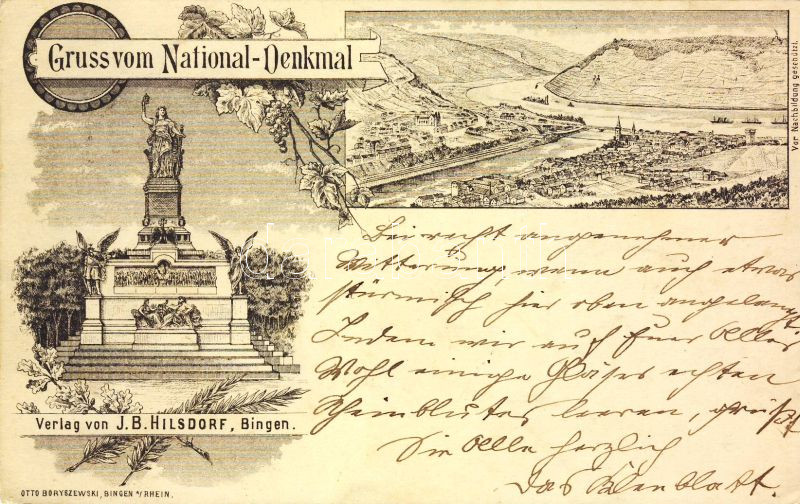 Gruss vom National-Denkmal
Vor Nachbildung geschützt.
Bei recht angenehmer
Witterung, wenn auch etwas
stürmisch hier oben angelangt
Indem wir auf Euer Aller
Wohl einige Gläser echten
Rheinblutes leeren, grüßt
Sie Alle herzlich
das
Verlag von J.B. HILSDORF, Bingen.
OTTO BORYSZEWSKI, BINGEN a/RHEIN.